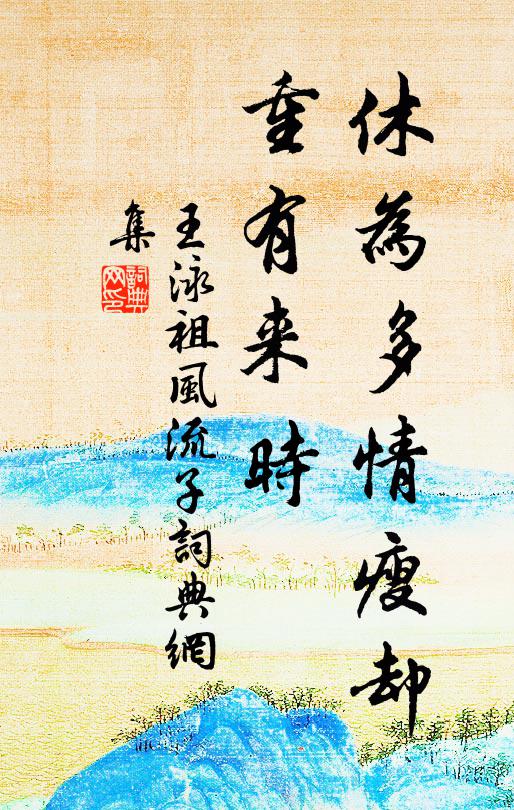 休為多情瘦却
重有来時
王泳祖風流子詞典網
集
詞典
网印